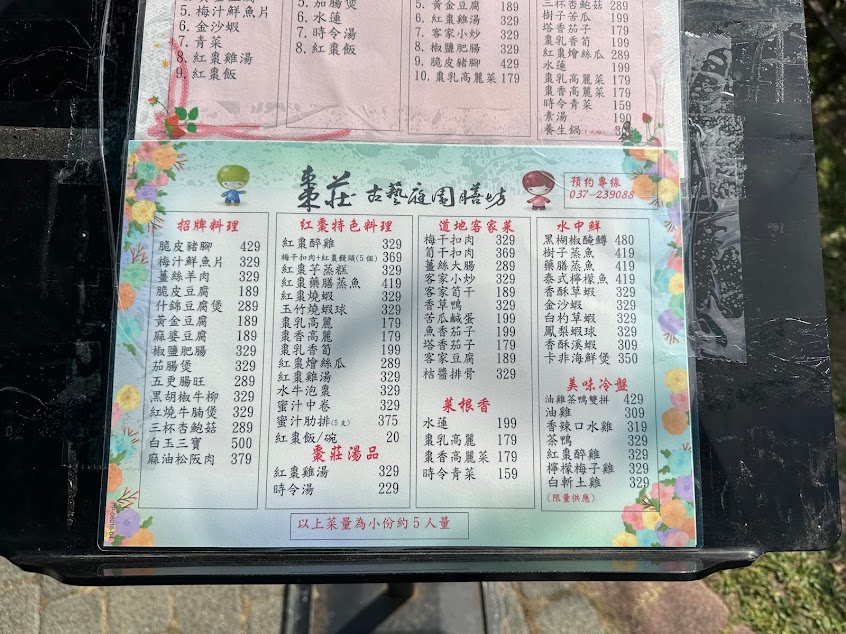 5. 梅汁鮮魚片
6. 金沙蝦
7. 青菜
8. 紅棗雞湯
9. 紅棗飯
5. 茄腸煲
6. 水蓮
7. 時令湯
8. 紅棗飯
5. 黃金豆腐 189
6. 紅棗雞湯 329
7. 客家小炒 329
8. 椒鹽肥腸 329
9. 脆皮豬腳 429
10. 棗乳高麗菜 179
三杯杏鮑菇 289
樹子苦瓜 199
塔香茄子 179
棗乳香筍 199
紅棗燴絲瓜 289
水蓮 199
棗乳高麗菜 179
棗香高麗菜 179
時令青菜 159
素湯 199
養生鍋
棗莊 古藝庭園膳坊
預約專線
037-239088
招牌料理
脆皮豬腳 429
梅汁鮮魚片 329
薑絲羊肉 329
脆皮豆腐 189
什錦豆腐煲 289
黃金豆腐 189
麻婆豆腐 189
椒鹽肥腸 329
茄腸煲 329
五更腸旺 289
黑胡椒牛柳 329
紅燒牛腩煲 329
三杯杏鮑菇 289
白玉三寶 500
麻油松阪肉 379
紅棗特色料理
紅棗醉雞 329
梅干扣肉+紅棗饅頭(5個) 369
紅棗芋蒸糕 329
紅棗藥膳蒸魚 419
紅棗燒蝦 329
玉竹燒蝦球 329
棗乳高麗 179
棗香高麗 179
棗乳香筍 199
紅棗燴絲瓜 289
紅棗雞湯 329
水牛泡棗 329
蜜汁中卷 329
蜜汁肋排(5支) 375
紅棗飯/碗 20
棗莊湯品
紅棗雞湯 329
時令湯 229
道地客家菜
梅干扣肉 329
筍干扣肉 369
薑絲大腸 289
客家小炒 329
客家筍干 189
香草鴨 329
苦瓜鹹蛋 199
魚香茄子 179
塔香茄子 179
客家豆腐 189
桔醬排骨 329
菜根香
水蓮 199
棗乳高麗 179
棗香高麗菜 179
時令青菜 159
水中鮮
黑胡椒醃鱒 480
樹子蒸魚 419
藥膳蒸魚 419
泰式檸檬魚 419
香酥草蝦 329
金沙蝦 329
白灼草蝦 329
鳳梨蝦球 329
香酥溪蝦 309
卡非海鮮煲 350
美味冷盤
油雞茶鴨雙拼 429
油雞 309
香辣口水雞 319
茶鴨 329
紅棗醉雞 329
檸檬梅子雞 329
白斬土雞 329
(限量供應)
以上菜量為小份約5人量